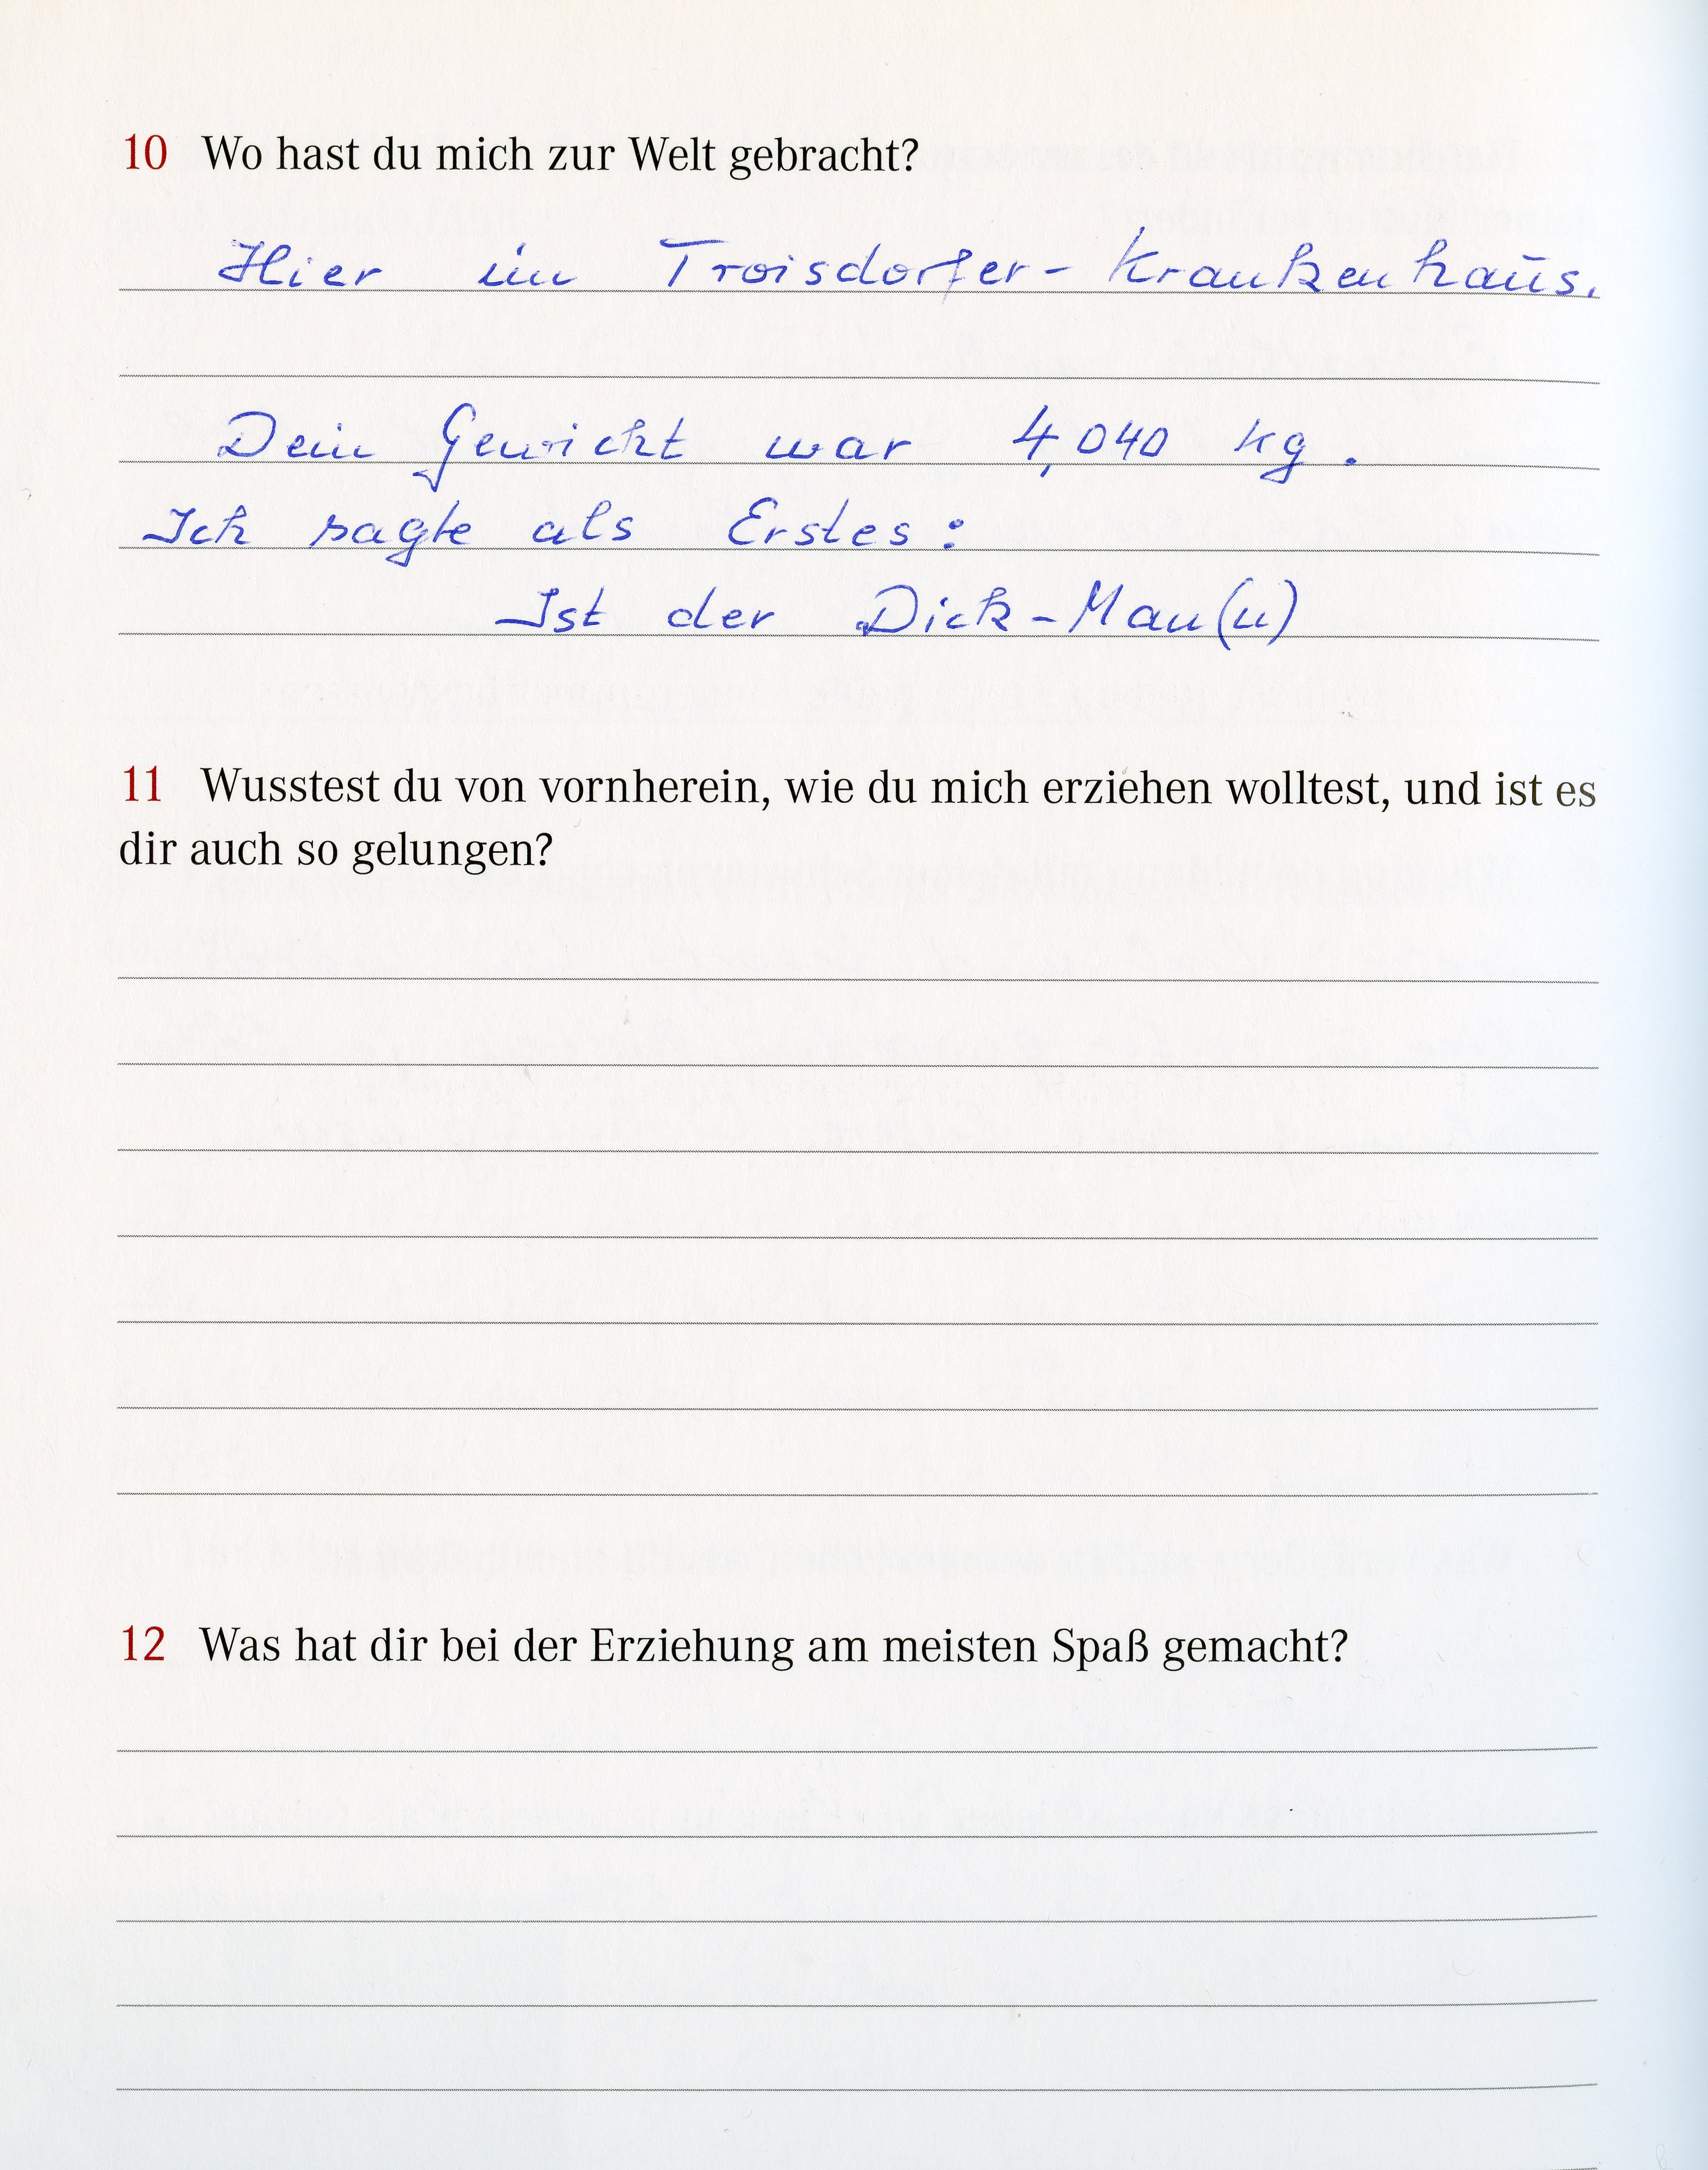 10 Wo hast du mich zur Welt gebracht?
Hier im Troisdorfer-Krankenhaus.
Dein Gewicht war 4,040 kg.
Ich sagte als Erstes:
Ist der Dick-Man(n)
11 Wusstest du von vornherein, wie du mich erziehen wolltest, und ist es
dir auch so gelungen?
12 Was hat dir bei der Erziehung am meisten Spaß gemacht?